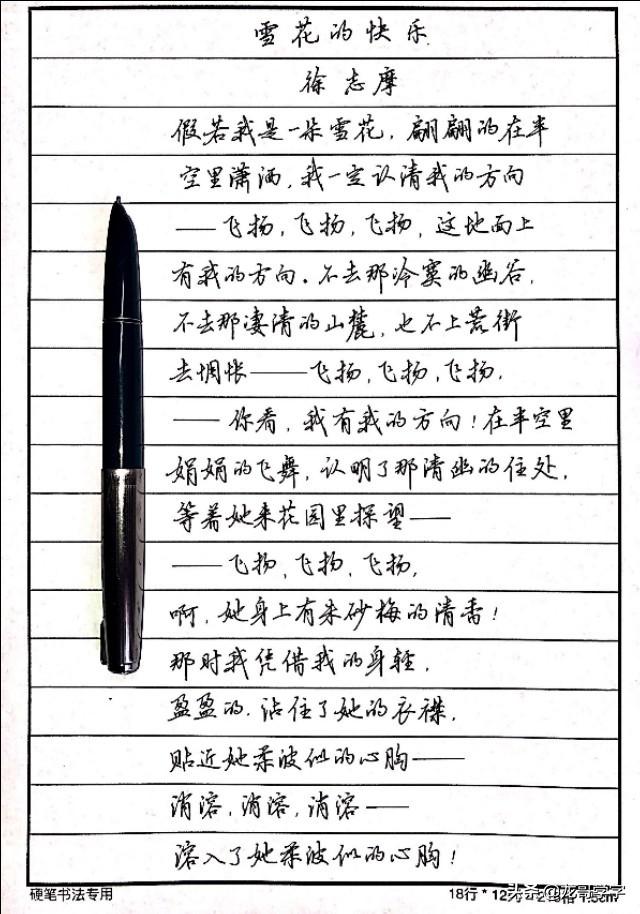 雪花的快乐
徐志摩
假若我是一朵雪花,翩翩的在半
空里潇洒,我一定认清我的方向
——飞扬,飞扬,飞扬,这地面上
有我的方向。不去那冷寞的幽谷,
不去那凄清的山麓,也不上荒街
去惆怅——飞扬,飞扬,飞扬,
——你看,我有我的方向!在半空里
娟娟的飞舞,认明了那清幽的住处,
等着她来花园里探望——
——飞扬,飞扬,飞扬,
啊,她身上有朱砂梅的清香!
那时我凭借我的身轻,
盈盈的,沾住了她的衣襟,
贴近她柔波似的心胸——
消溶,消溶,消溶——
溶入了她柔波似的心胸!
硬笔书法专用 18行*12